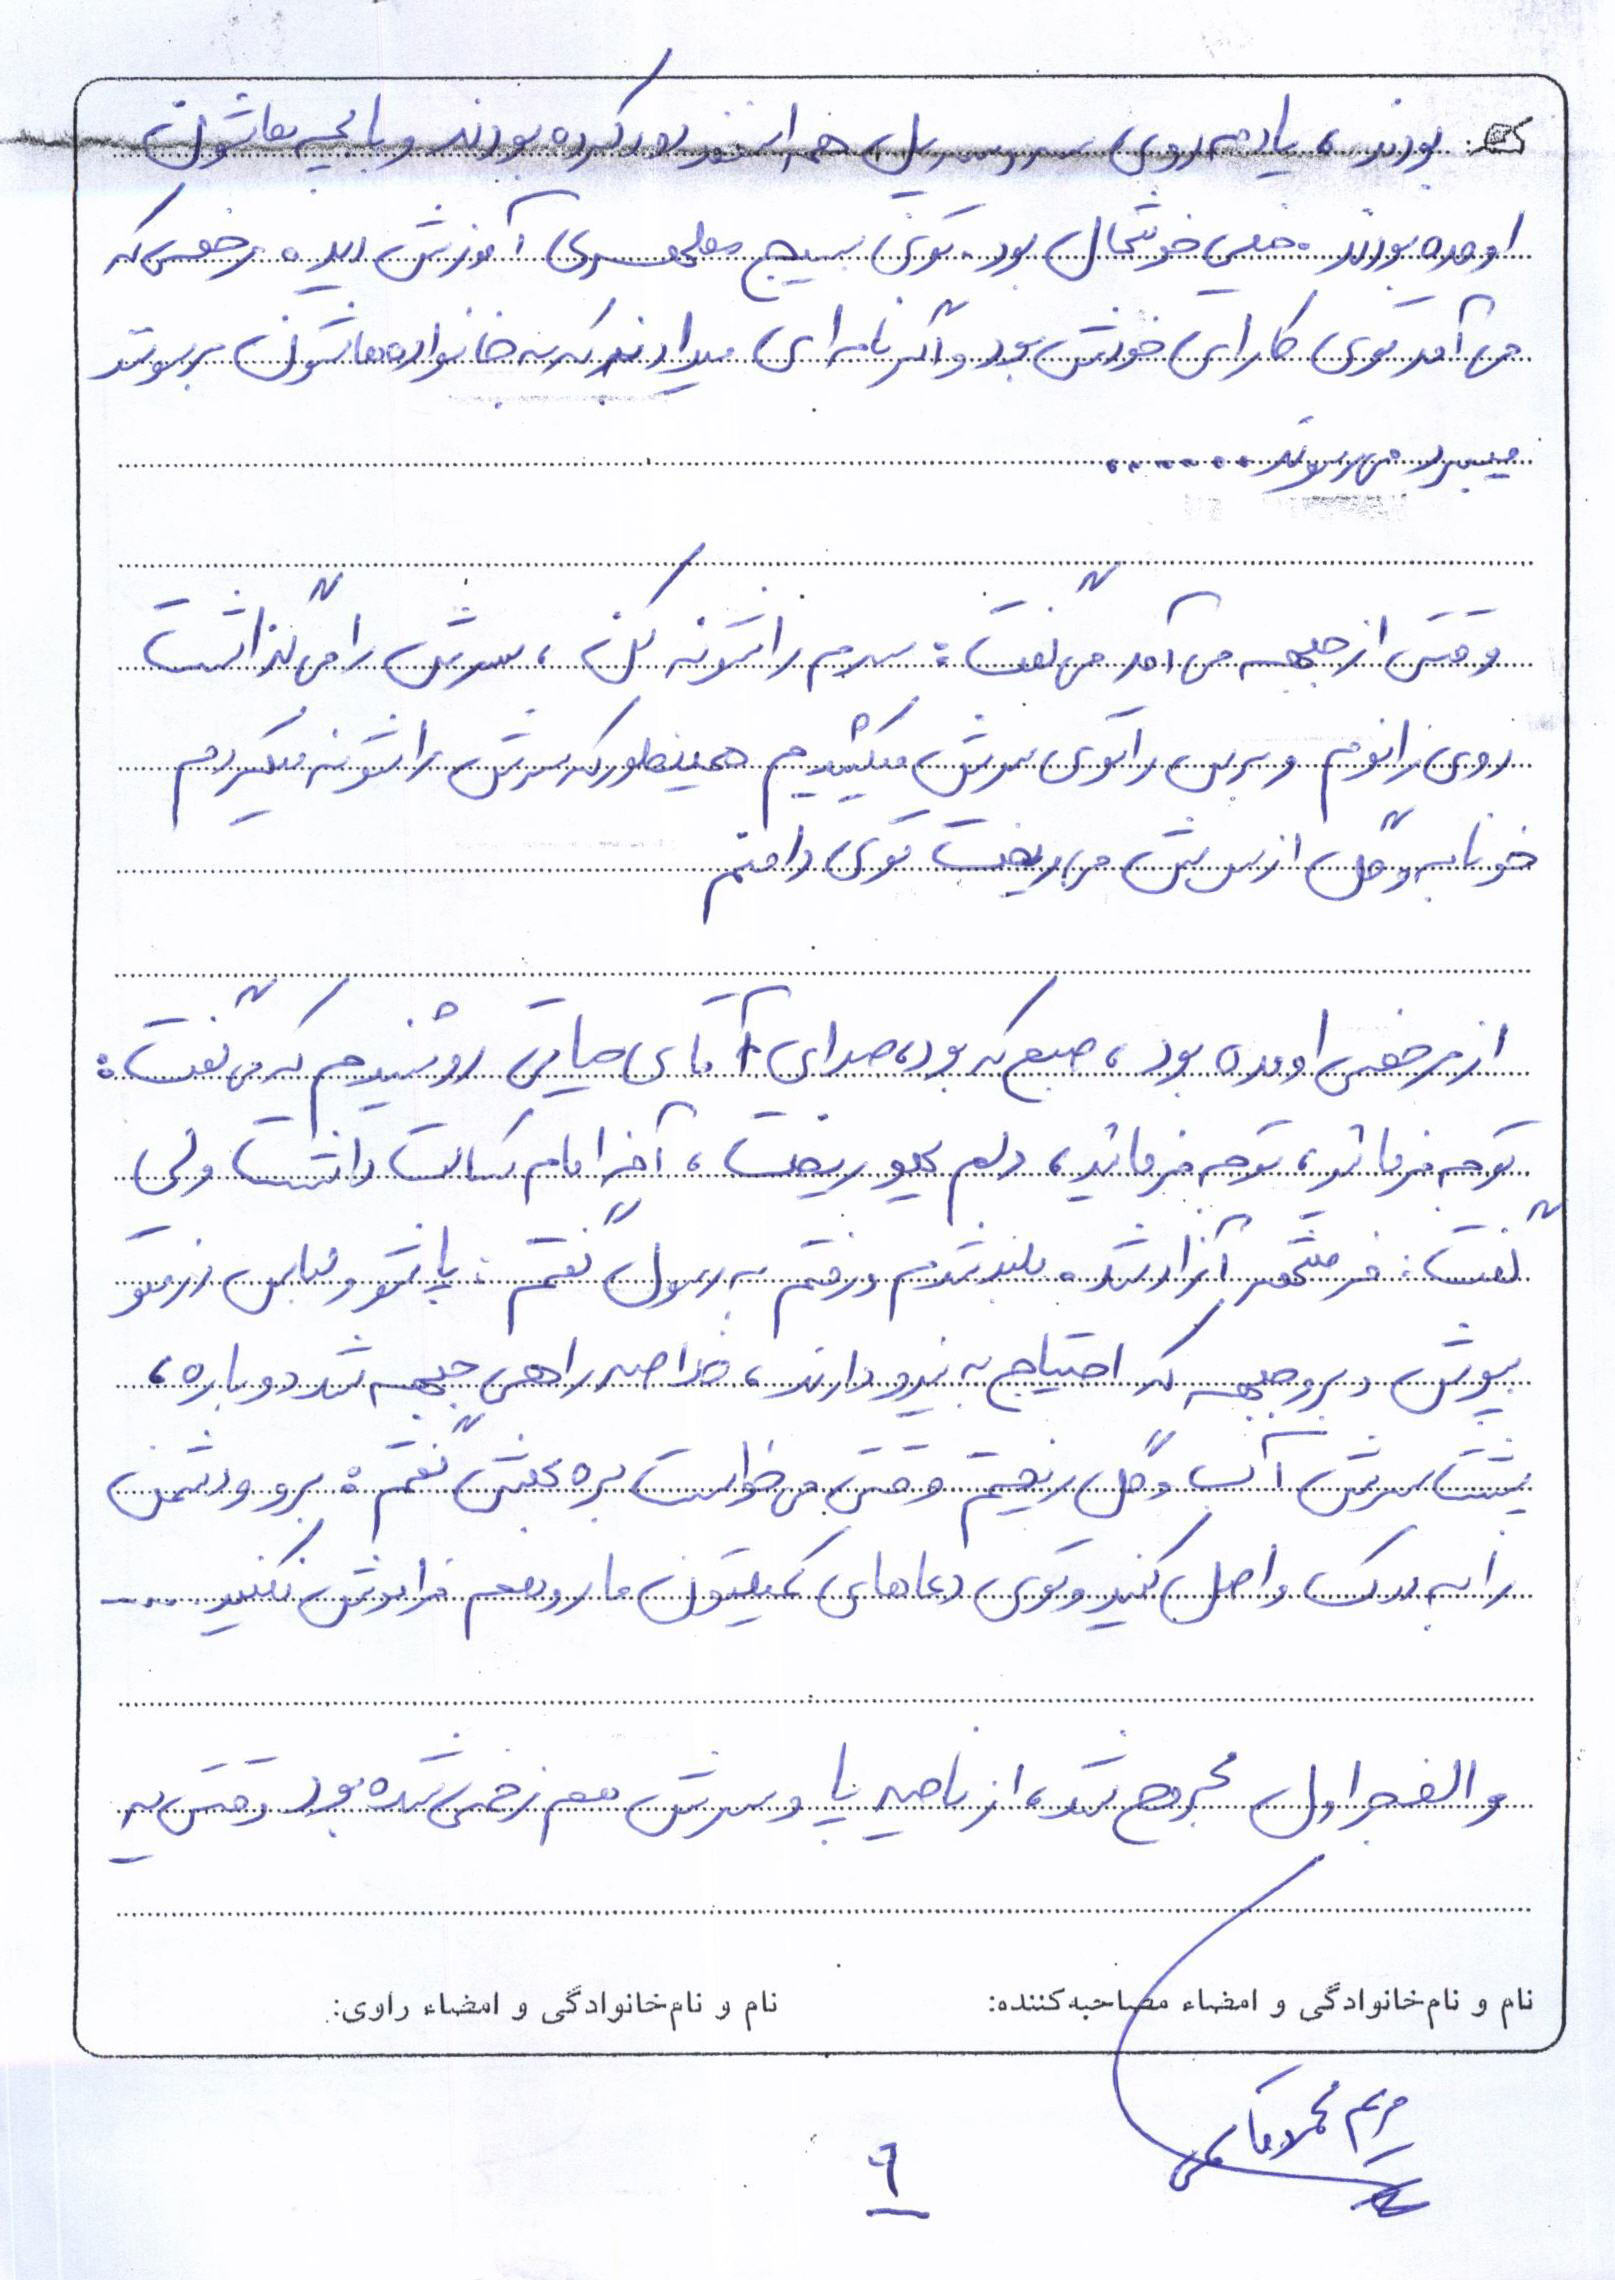 بودند، یادمه روی سر و سریل هم را نور کرده بودند و با بچه هاشون
اومده بودند. خیلی خوشحال بود. توی بسیج ملی سری آموزش دیده مرخصی که
می آمد توی کارای خودش بود و اگر نامه ای میدادند که به خانواده هاشون برسوند
میبرد می رسوند ......
وقتی از جبهه می آمد می گفت: سرم را شونه کن، سرش را می گذاشت
روی زانوم و برس را توی سرش میکشیدم همینطور که سرش را شونه میکردم
خونابه و گل از سرش می ریخت توی دامنم
از مرخصی اومده بود، صبح که بود، صدای آقای حیاتی رو شنیدم که می گفت:
توجه فرمائید، توجه فرمائید، دلم یهو ریخت، آخه امام کسالت داشت ولی
گفت: خرمشهر آزاد شد. بلند شدم رفتم به رسول گفتم: پاشو و لباس رزمتو
بپوش و برو جبهه که احتیاج به نیرو دارند، خلاصه راهی جبهه شد دوباره،
پشت سرش آب و گل ریختم وقتی می خواست بره بهش گفتم: برو و دشمن
را به درک واصل کنید و توی دعاهای کمیلتون ما رو هم فراموش نکنید ....
والفجر اول مجروح شد، از ناحیه پا و سرش هم زخمی شده بود وقتی به
نام و نام خانوادگی و امضاء مصاحبه کننده:
نام و نام خانوادگی و امضاء راوی:
مریم
۹